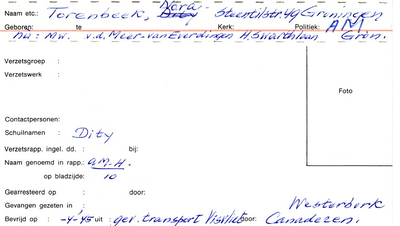 Naam etc.: Torenbeek, Nora Steentilstr 49 Groningen
Geboren: te Kerk: Politiek: AM
nu: Mw. v.d. Meer-van Everdingen H. Swarthlaan Gron.
Verzetsgroep :
Verzetswerk :
Foto
Contactpersonen:
Schuilnamen : Dity
Verzetsrapp. ingel. dd. : bij:
Naam genoemd in rapp.: a.M.H.
op bladzijde: 10
Gearresteerd op : door:
Gevangen gezeten in : Westerbork
Bevrijd op : -4-'45 uit : gev. transport Visvliet door: Canadezen.